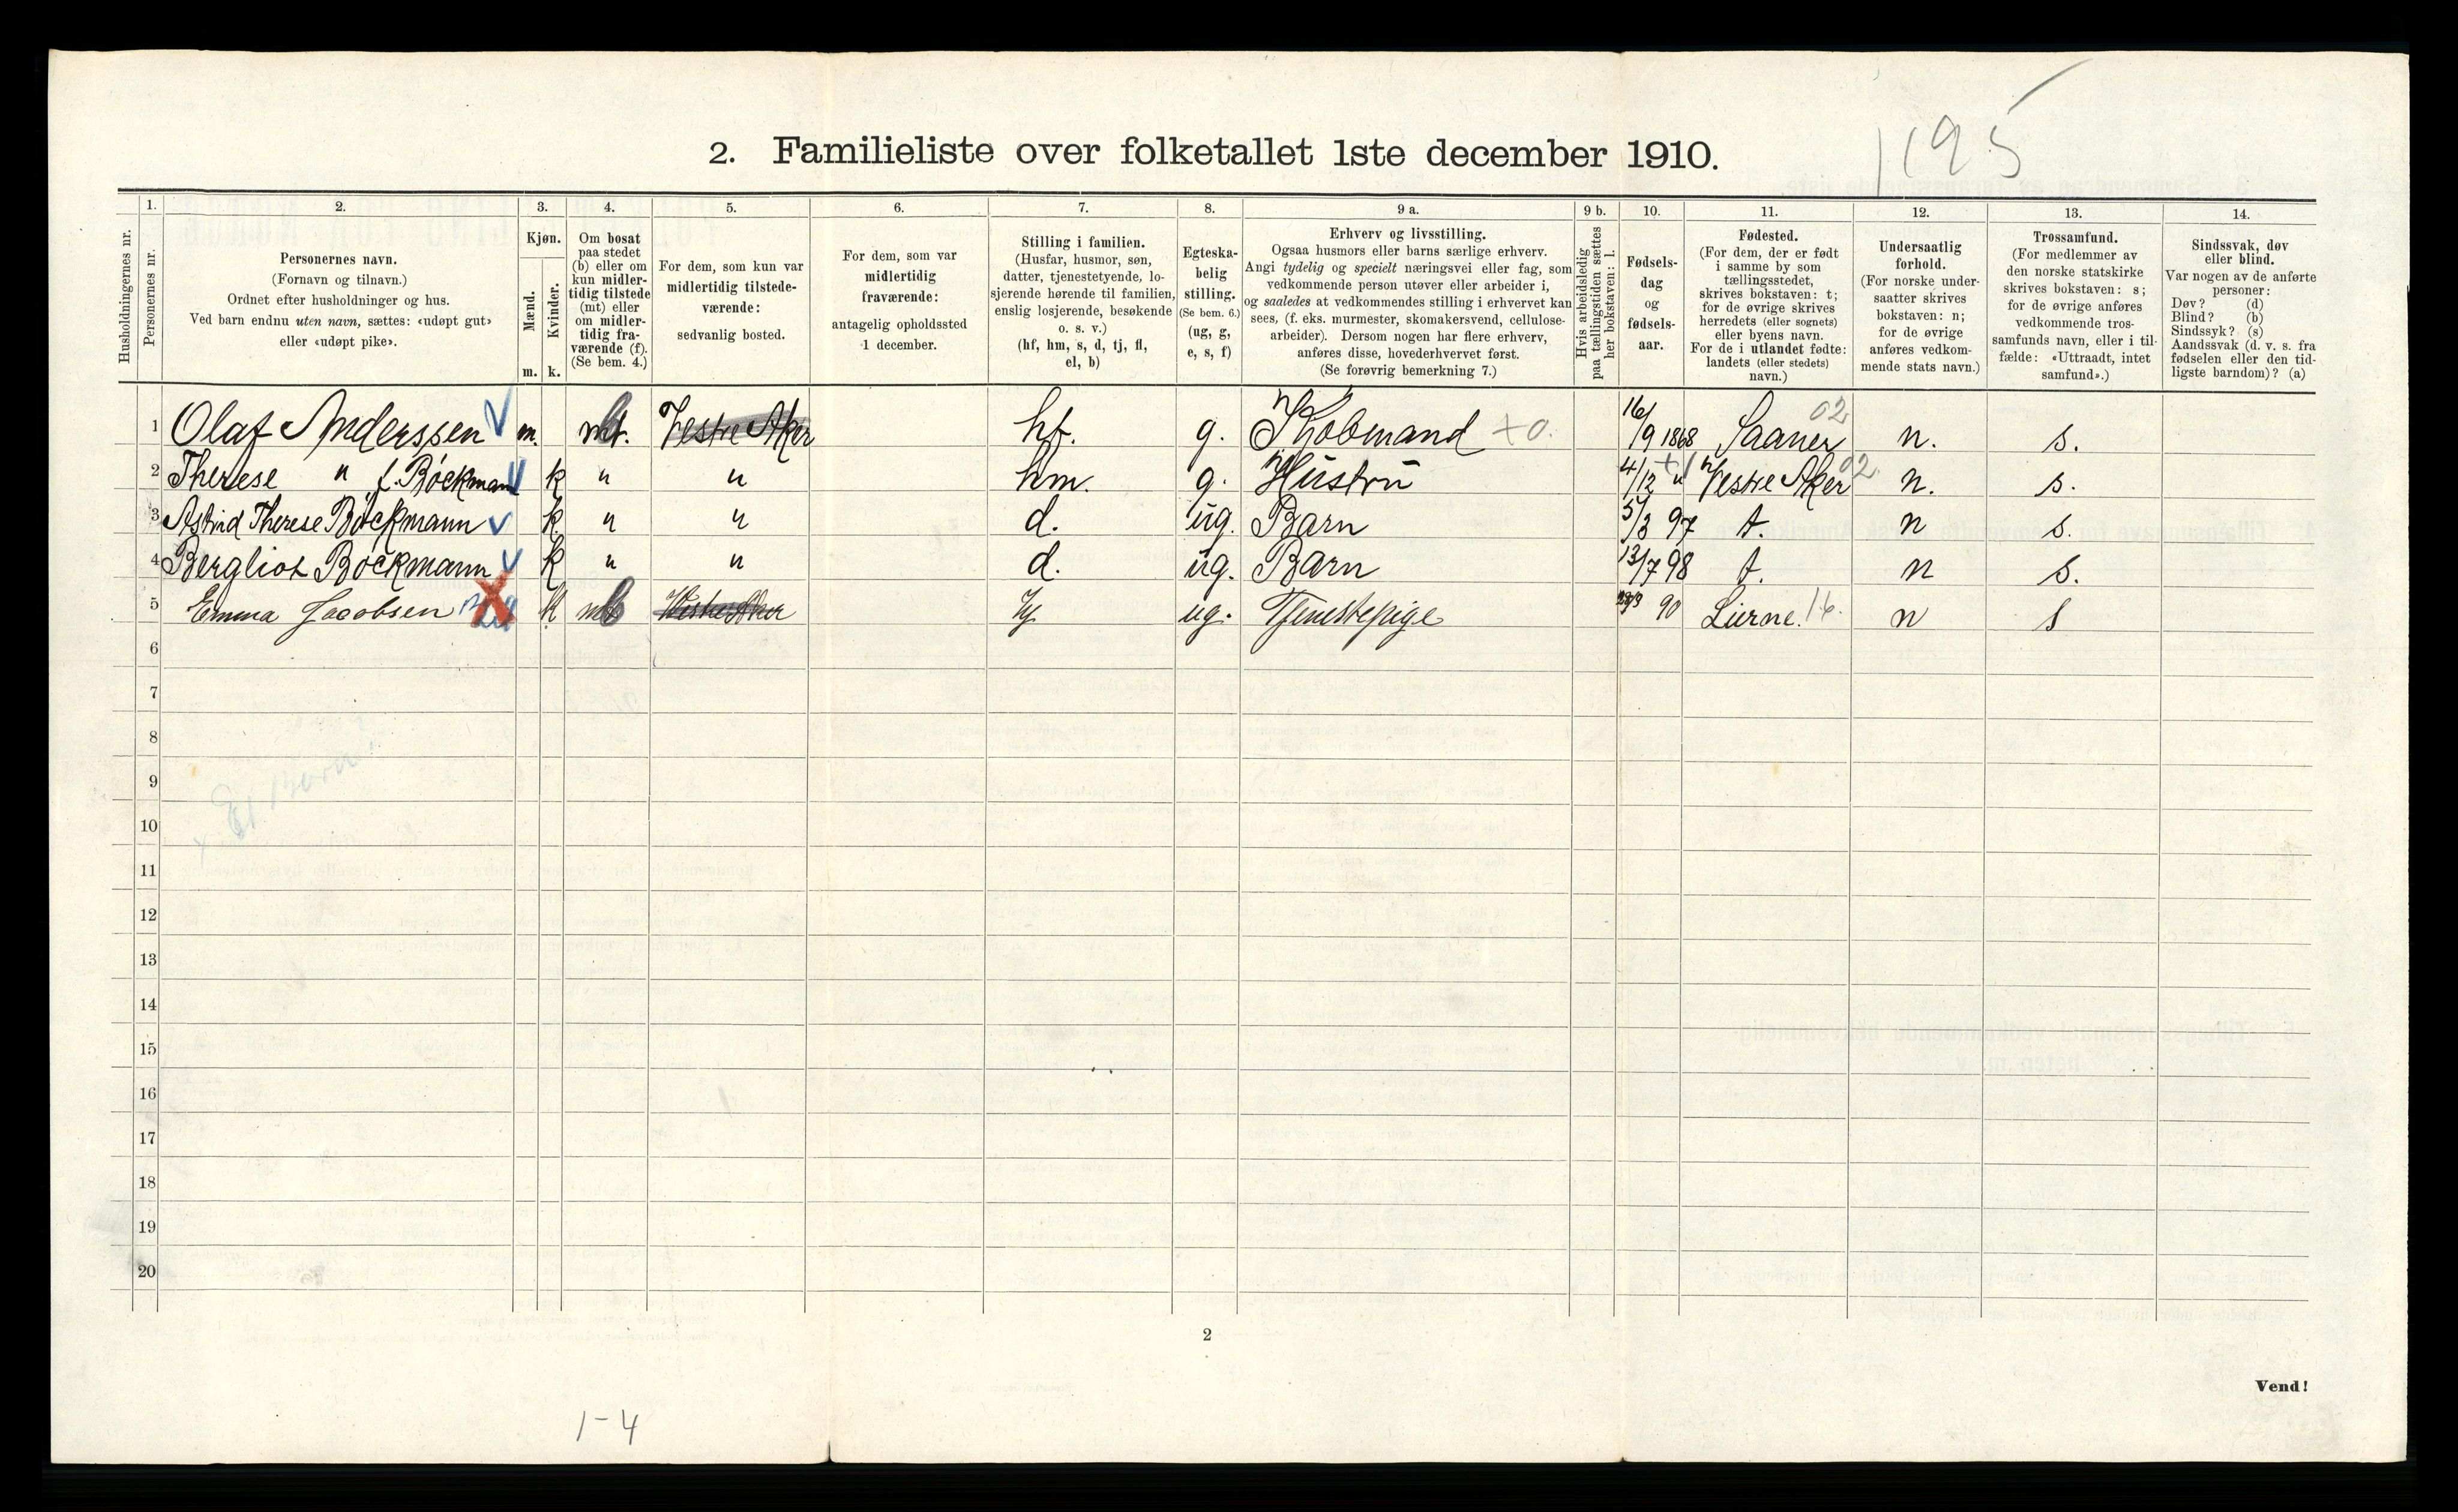 1195
2. Familieliste over folketallet 1ste december 1910.
Husholdningernes nr.
1. Personernes nr.
2. Personernes navn. (Fornavn og tilnavn.) Ordnet efter husholdninger og hus. Ved barn endnu uten navn, sættes: «udøpt gut» eller «udøpt pike».
3. Kjøn. Mænd. m. Kvinder. k.
4. Om bosat paa stedet (b) eller om kun midlertidig tilstede (mt) eller om midlertidig fraværende (f). (Se bem. 4.)
5. For dem, som kun var midlertidig tilstedeværende: sedvanlig bosted.
6. For dem, som var midlertidig fraværende: antagelig opholdssted 1 december.
7. Stilling i familien. (Husfar, husmor, søn, datter, tjenestetyende, losjerende hørende til familien, enslig losjerende, besøkende o. s. v.) (hf, hm, s, d, tj, fl, el, b)
8. Egteskabelig stilling. (Se bem. 6.) (ug, g, e, s, f)
9 a. Erhverv og livsstilling. Ogsaa husmors eller barns særlige erhverv. Angi tydelig og specielt næringsvei eller fag, som vedkommende person utøver eller arbeider i, og saaledes at vedkommendes stilling i erhvervet kan sees, (f. eks. murmester, skomakersvend, cellulosearbeider). Dersom nogen har flere erhverv, anføres disse, hovederhvervet først. (Se forøvrig bemerkning 7.)
9 b. Hvis arbeidsledig paa tællingstiden sættes her bokstaven: l.
10. Fødselsdag og fødselsaar.
11. Fødested. (For dem, der er født i samme by som tællingsstedet, skrives bokstaven: t; for de øvrige skrives herredets (eller sognets) eller byens navn. For de i utlandet fødte: landets (eller stedets) navn.)
12. Undersaatlig forhold. (For norske undersaatter skrives bokstaven: n; for de øvrige anføres vedkommende stats navn.)
13. Trossamfund. (For medlemmer av den norske statskirke skrives bokstaven: s; for de øvrige anføres vedkommende trossamfunds navn, eller i tilfælde: «Uttraadt, intet samfund».)
14. Sindssvak, døv eller blind. Var nogen av de anførte personer: Døv? (d) Blind? (b) Sindssyk? (s) Aandssvak (d. v. s. fra fødselen eller den tidligste barndom)? (a)
1 Olaf Anderssen m. mt. b Vestre Aker hf. g. Kjøbmand +0. 16/9 1868 Saaner 02 n. s.
2 Therese " f. Bøckmann k " " hm. g. Hustru 4/12 " Vestre Aker 02 n. s.
3 Astrid Therese Bøckmann k. " " d. ug. Barn 5/3 97 t. n s.
4 Bergliot Bøckmann k " " d. ug. Barn 13/7 98 t. n s.
5 Emma Jacobsen k mt b Vestre Aker tj ug. Tjenestepige 90 Lierne. 16. n s
6
7
8
9
10
11
12
13
14
15
16
17
18
19
20
2
Vend!
1-4